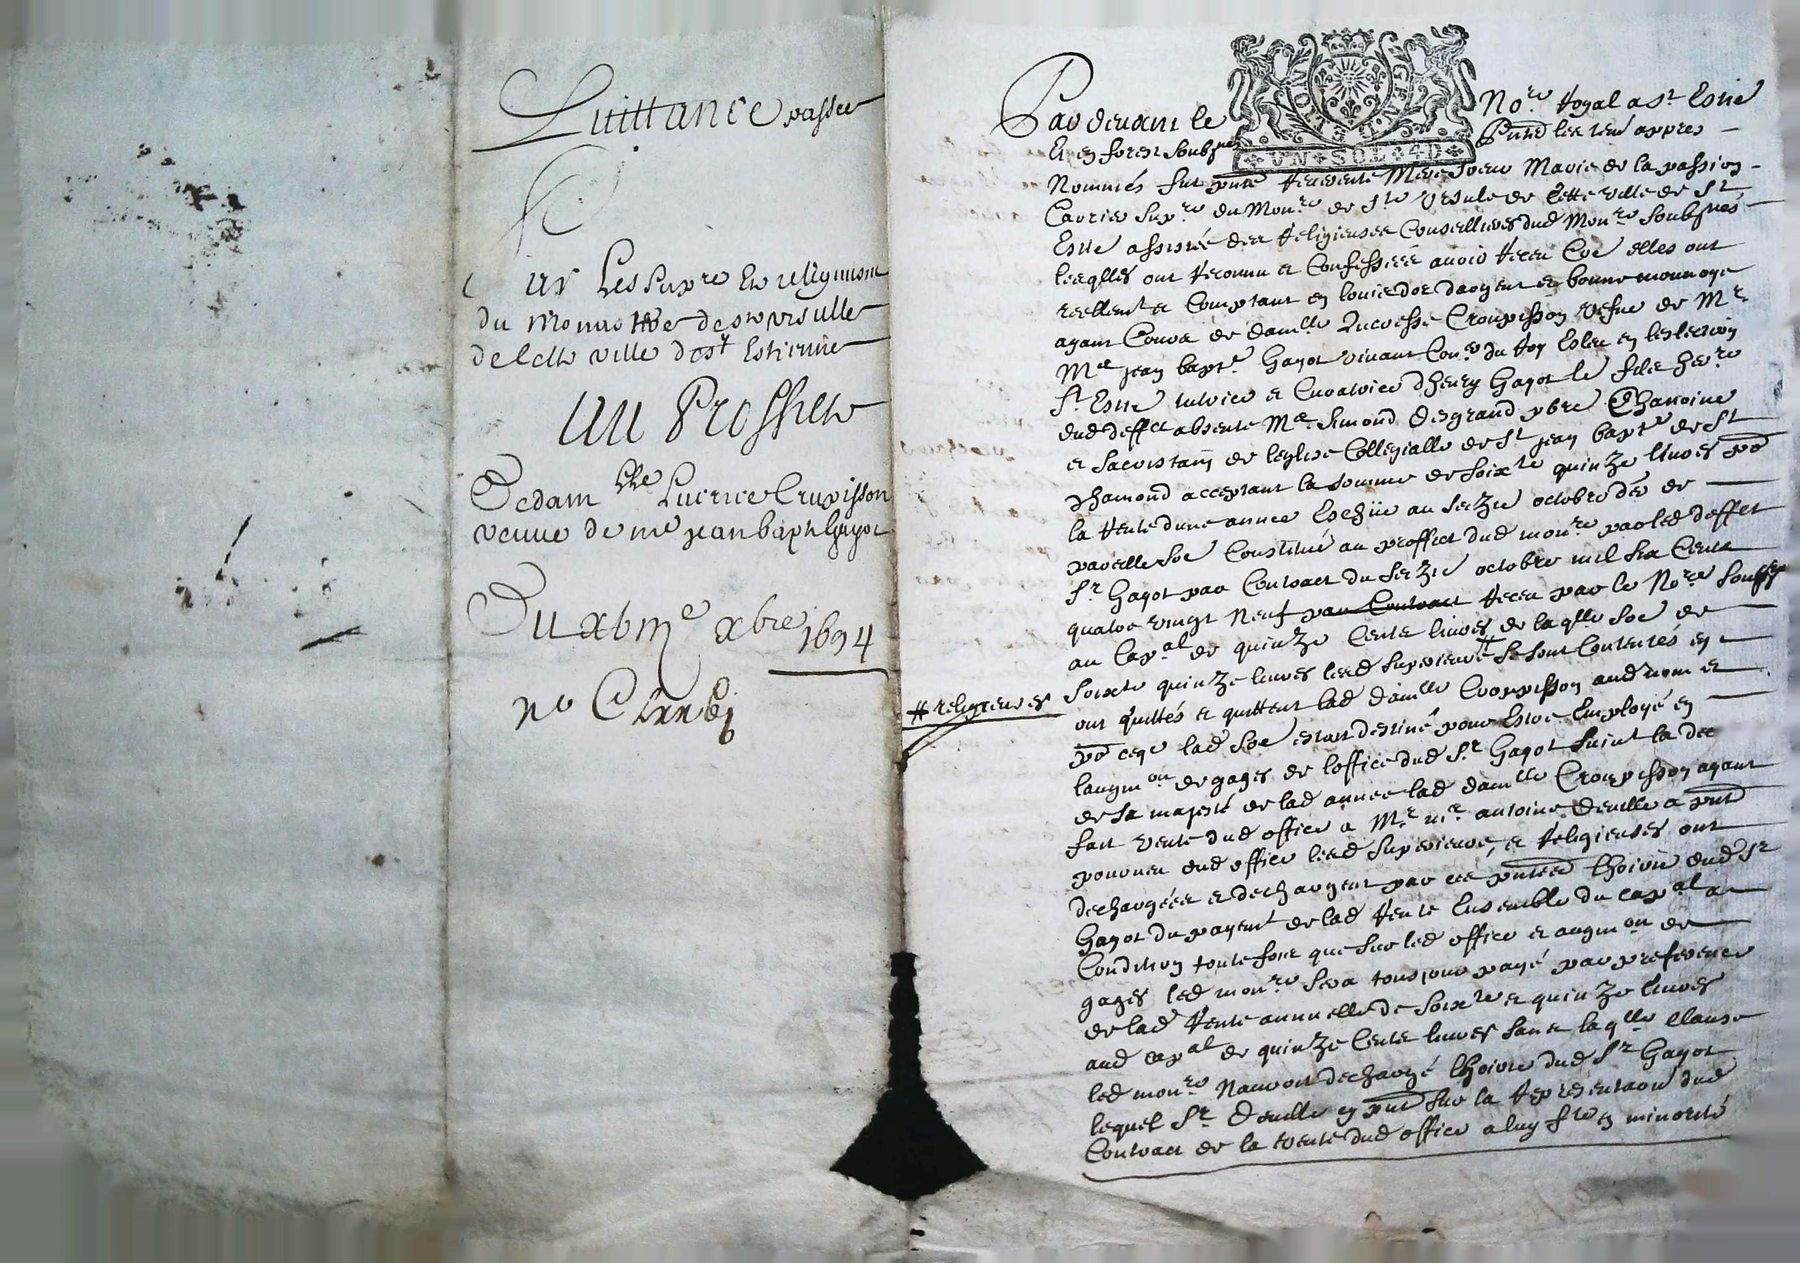 Quittance passée
Par Les Supre Et religieuses
du Monastere de ste ursulle
de Cette ville de st Estienne
Au Proffit
De dam lle Lucrece Crupisson
veuve de me jean bapt Gayot
Du xbme xbre 1694
no
Pardevant le Nore Royal a St Estne
Et en forest soubsne
GEN. DE LYON
UN SOL 4D
Nommés fut reverente Mere Soeur Marie de la passion
Supre du Monre de Ste Ursule de Cette ville de St
Estne assistée des Religieuses Conseillieres dud Monre soubsnés
lesqlles ont reconnu et Confessées avoir receu Coe elles ont
reellemt et Comptant en louis dor dargent et bonne monnoye
ayant Cours de damlle Lucresse Croupisson vefue de Mr
Me jean bapte Gayot vivant Coner du Roy Esleu en leslection
St Estne tutrice et Curatrice dhenry Gayot le fils herre
dud deffct absente Me Simond Desgrand pbre Chanoine
et Sacristain de leglise Collegialle de St jean bapte de St
Chamond acceptant la somme de soixte quinze livres pr
la rente dune annee Escheue au seizie octobre der de
pareille soe Constitué au proffict dud monre par led deffct
Sr Gayot par Contract du seizie octobre mil six Cents
quatre vingt neuf par Contract receu par le Nore soussé
au Capal de quinze Cents livres de laqlle soe de
soixte quinze livres lesd superieure # se sont Contentés en
# religieuses
ont quittés et quittent lad damlle Croupisson aud nom et
pr ceqe lad soe estant destiné pour Estre Employé en
laugmon de gages de loffice dud Sr Gayot suivt la dec
de sa majesté de lad annee lad damlle Croupisson ayant
fait vente dud office a Mr me antoine Deville a pnt
pourveu dud office lesd superieure, et Religieuses ont
dechargées et dechargent par ces pntes lhoirie dud Sr
Gayot du payemt de lad rente Ensemble du capal a
Condition toutefois que sur led office et augmon de
gages led monre sera tousjour payé par preference
de lad rente annuelle de soixte et quinze livres
aud capal de quinze Cents livres sans laqlle Clause
led monre Nauroit dechargé lhoirie dud Sr Gayot
lequel Sr Deville en pnt sur la representaon dud
Contract de la vente dud office a luy fte en minorité